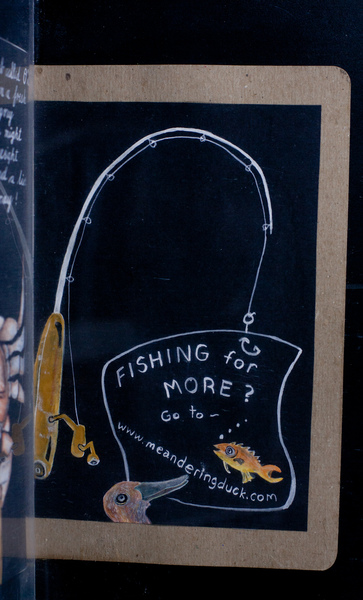 FISHING for
MORE?
Go to ~
www.meanderingduck.com
night